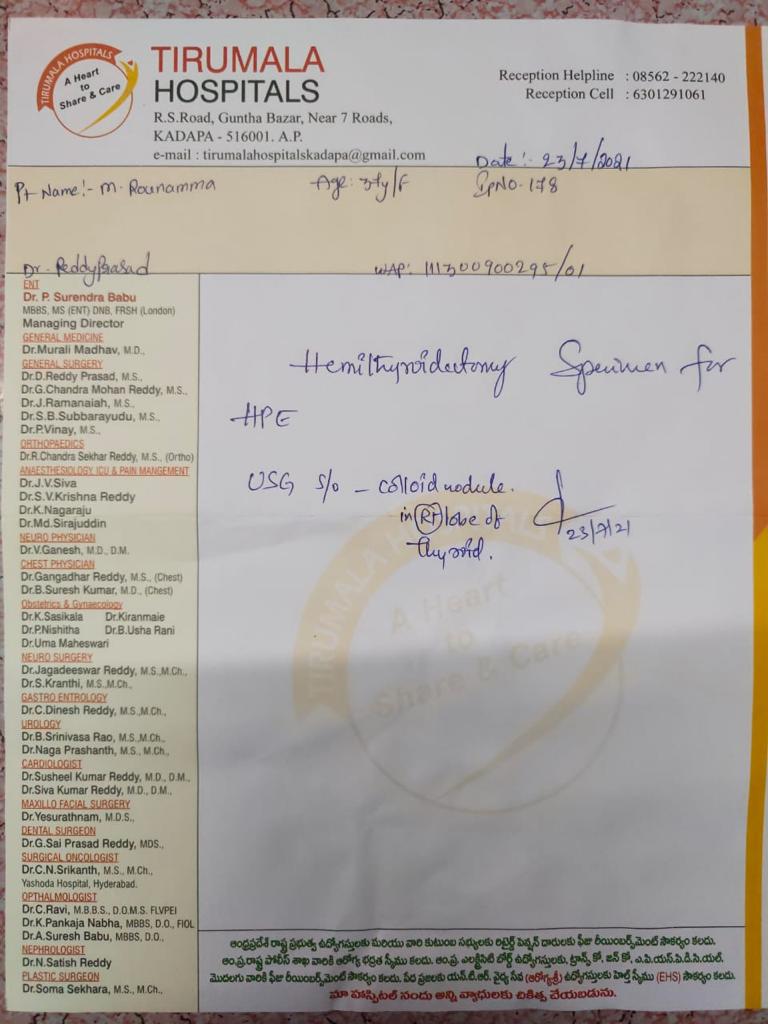 TIRUMALA HOSPITALS
A Heart
to
Share & Care
TIRUMALA
HOSPITALS
R.S.Road, Guntha Bazar, Near 7 Roads,
KADAPA - 516001. A.P.
e-mail : tirumalahospitalskadapa@gmail.com
Reception Helpline : 08562 - 222140
Reception Cell : 6301291061
Date:- 23/7/2021
Pt Name:- M. Rounamma Age: 37y/F IpNO-178
Dr. ReddyPrasad WAP: 111300900295/01
ENT
Dr. P. Surendra Babu
MBBS, MS (ENT) DNB, FRSH (London)
Managing Director
GENERAL MEDICINE
Dr.Murali Madhav, M.D.,
GENERAL SURGERY
Dr.D.Reddy Prasad, M.S.,
Dr.G.Chandra Mohan Reddy, M.S.,
Dr.J.Ramanaiah, M.S.,
Dr.S.B.Subbarayudu, M.S.,
Dr.P.Vinay, M.S.,
ORTHOPAEDICS
Dr.R.Chandra Sekhar Reddy, M.S., (Ortho)
ANAESTHESIOLOGY, ICU & PAIN MANGEMENT
Dr.J.V.Siva
Dr.S.V.Krishna Reddy
Dr.K.Nagaraju
Dr.Md.Sirajuddin
NEURO PHYSICIAN
Dr.V.Ganesh, M.D., D.M.
CHEST PHYSICIAN
Dr.Gangadhar Reddy, M.S., (Chest)
Dr.B.Suresh Kumar, M.D., (Chest)
Obstetrics & Gynaecology
Dr.K.Sasikala Dr.Kiranmaie
Dr.P.Nishitha Dr.B.Usha Rani
Dr.Uma Maheswari
NEURO SURGERY
Dr.Jagadeeswar Reddy, M.S.,M.Ch.,
Dr.S.Kranthi, M.S.,M.Ch.,
GASTRO ENTROLOGY
Dr.C.Dinesh Reddy, M.S.,M.Ch.,
UROLOGY
Dr.B.Srinivasa Rao, M.S.,M.Ch.,
Dr.Naga Prashanth, M.S., M.Ch.,
CARDIOLOGIST
Dr.Susheel Kumar Reddy, M.D., D.M.,
Dr.Siva Kumar Reddy, M.D., D.M.,
MAXILLO FACIAL SURGERY
Dr.Yesurathnam, M.D.S.,
DENTAL SURGEON
Dr.G.Sai Prasad Reddy, MDS.,
SURGICAL ONCOLOGIST
Dr.C.N.Srikanth, M.S., M.Ch.,
Yashoda Hospital, Hyderabad.
OPTHALMOLOGIST
Dr.C.Ravi, M.B.B.S., D.O.M.S. FLVPEI
Dr.K.Pankaja Nabha, MBBS, D.O., FIOL
Dr.A.Suresh Babu, MBBS, D.O.,
NEPHROLOGIST
Dr.N.Satish Reddy
PLASTIC SURGEON
Dr.Soma Sekhara, M.S., M.Ch.,
Hemithyroidectomy Specimen for
HPE
USG s/o - colloid nodule.
in Rt lobe of
thyroid.
23/7/21
TIRUMALA HOSPITALS
A Heart
to
Share & Care
ఆంధ్రప్రదేశ్ రాష్ట్ర ప్రభుత్వ ఉద్యోగస్తులకు మరియు వారి కుటుంబ సభ్యులకు రిటైర్డ్ పెన్షన్ దారులకు ఫీజు రీయింబర్స్‌మెంట్ సౌకర్యం కలదు.
ఆం.ప్ర.రాష్ట్ర పోలీస్ శాఖ వారికి ఆరోగ్య భద్రత స్కీము కలదు. ఆం.ప్ర. ఎలక్ట్రిసిటీ బోర్డ్ ఉద్యోగస్తులకు, ట్రాన్స్ కో, జెన్ కో, ఎ.పి.యస్.పి.డి.సి.యల్.
మొదలగు వారికి ఫీజు రీయింబర్స్‌మెంట్ సౌకర్యం కలదు. పేద ప్రజలకు యన్.టి.ఆర్. వైద్య సేవ (ఆరోగ్యశ్రీ) ఉద్యోగస్తులకు హెల్త్ స్కీము (EHS) సౌకర్యం కలదు.
మా హాస్పిటల్ నందు అన్ని వ్యాధులకు చికిత్స చేయబడును.